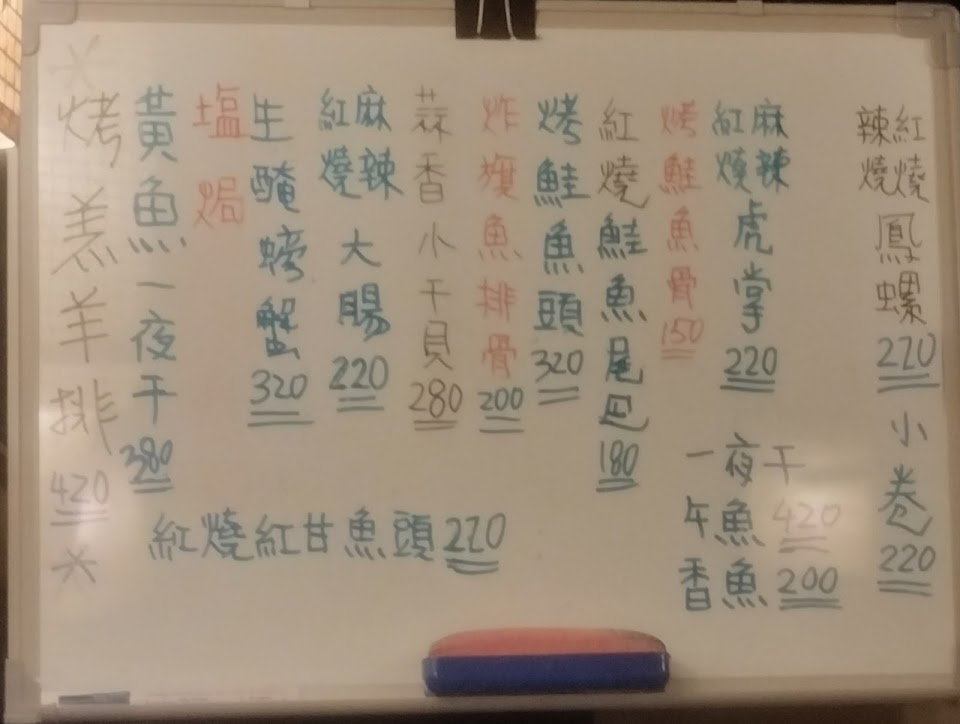 紅燒
辣燒
鳳螺
220
小卷
220
麻辣
紅燒
虎掌
220
一夜干
午魚 420
香魚 200
烤鮭魚骨
150
紅燒鮭魚尾巴
180
烤鮭魚頭
320
炸旗魚排骨
200
蒜香小干貝
280
麻辣
紅燒
大腸
220
生醃螃蟹
320
塩焗
黃魚一夜干
380
*烤羔羊排
420*
紅燒紅甘魚頭 220